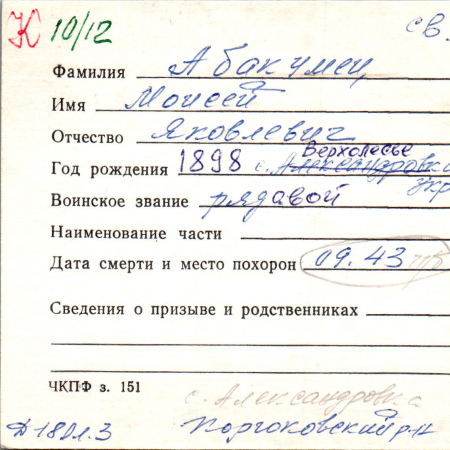 К 10/12 св.
Фамилия Абакумец
Имя Моисей
Отчество Яковлевич
Верхолесье
Год рождения 1898 с. Александровка
укр
Воинское звание рядовой
Наименование части
Дата смерти и место похорон 09.43
Сведения о призыве и родственниках
ЧКПФ з. 151
с. Александровка
Д180л.3 Коргоковский р-н